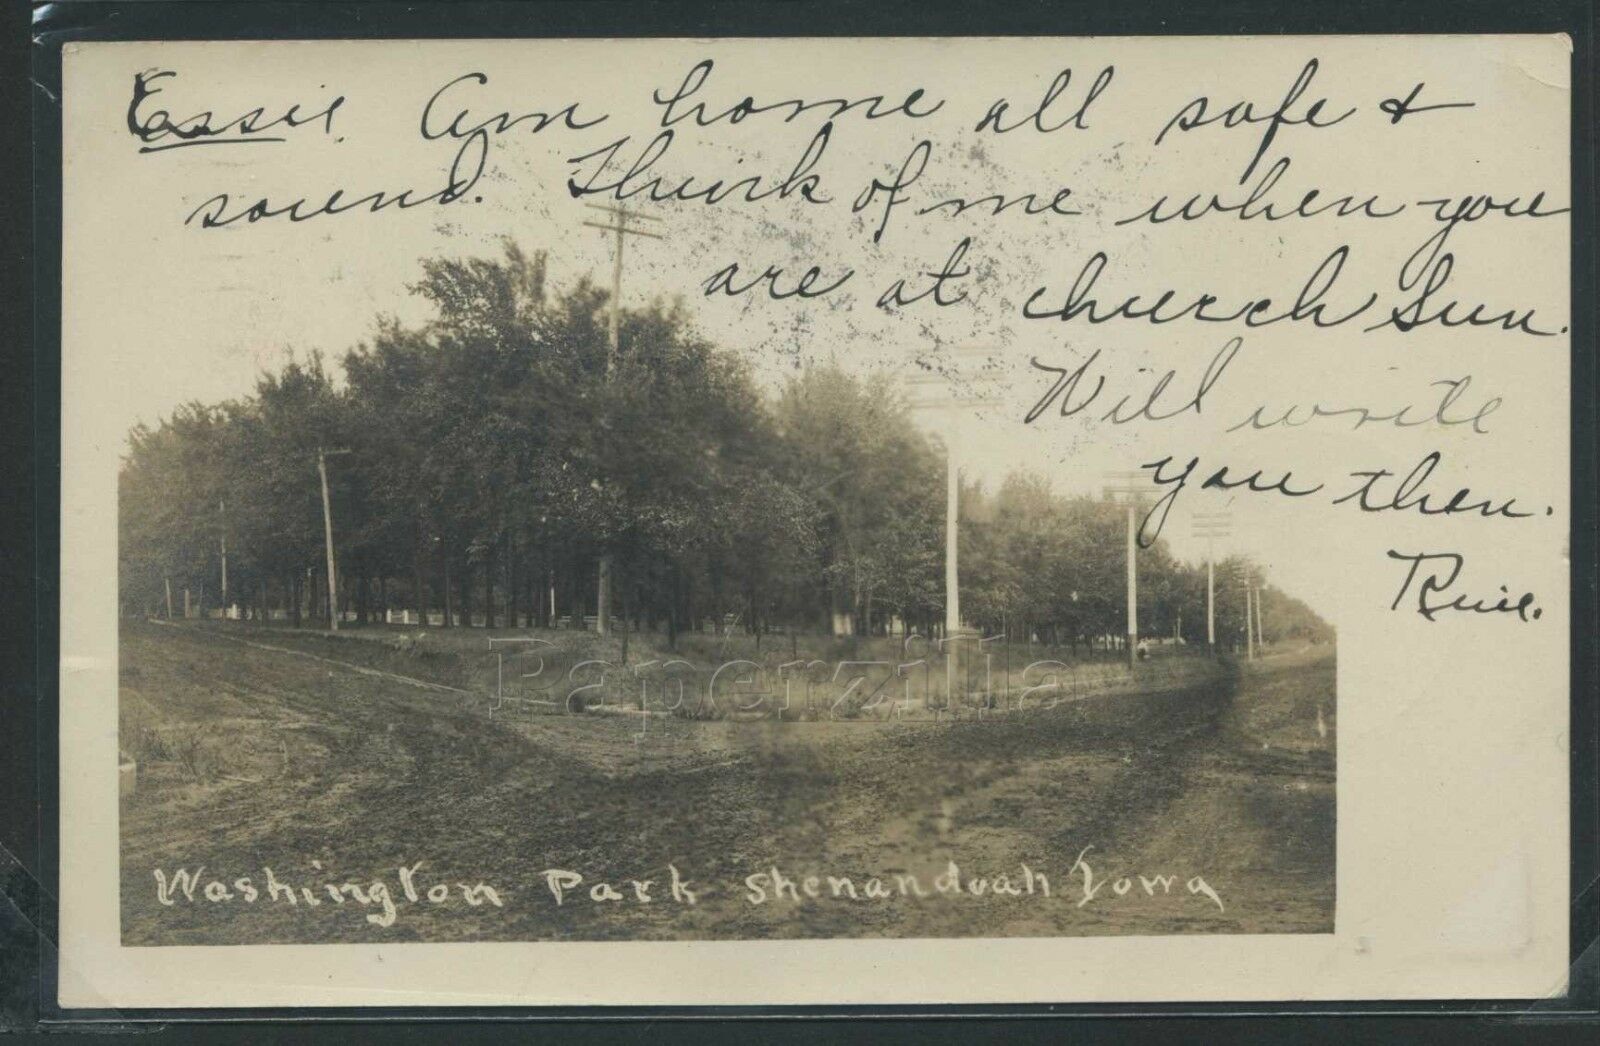 Essie. Am home all safe &
sound. Think of me when you
are at church Sun.
Will write
you then.
Paperzilla
Washington Park Shenandoah Iowa